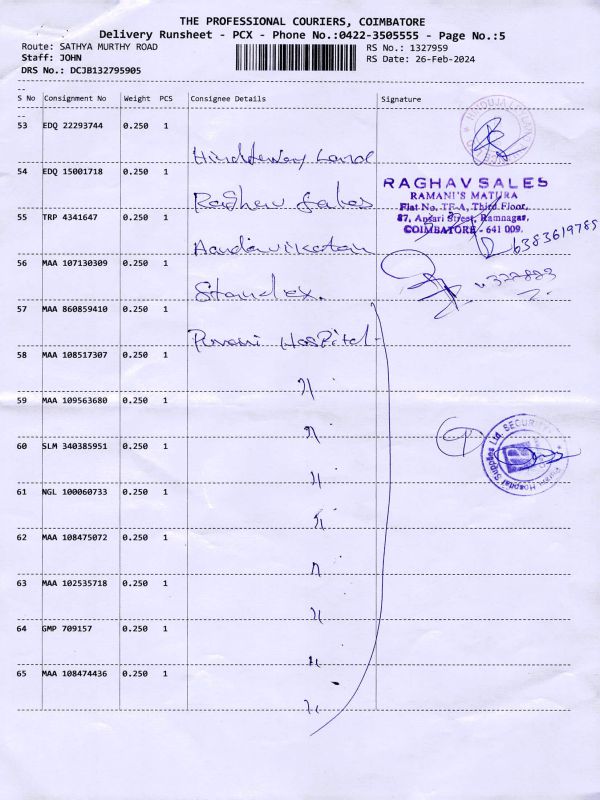 THE PROFESSIONAL COURIERS, COIMBATORE
Delivery Runsheet - PCX - Phone No.:0422-3505555 - Page No.:5
Route: SATHYA MURTHY ROAD
RS No.: 1327959
Staff: JOHN
RS Date: 26-Feb-2024
DRS No.: DCJB132795905
S No Consignment No Weight PCS Consignee Details Signature
53 EDQ 22293744 0.250 1
54 EDQ 15001718 0.250 1
Raghav Sales
RAGHAV SALES
RAMANI'S MATURA
Flat No. TF-A, Third Floor,
87, Ansari Street, Ramnagar,
COIMBATORE - 641 009.
55 TRP 4341647 0.250 1
6383619785
56 MAA 107130309 0.250 1
Standex.
57 MAA 860859410 0.250 1
Hospital
58 MAA 108517307 0.250 1
"
59 MAA 109563680 0.250 1
"
60 SLM 340385951 0.250 1
"
61 NGL 100060733 0.250 1
"
62 MAA 108475072 0.250 1
"
63 MAA 102535718 0.250 1
"
64 GMP 709157 0.250 1
"
65 MAA 108474436 0.250 1
"